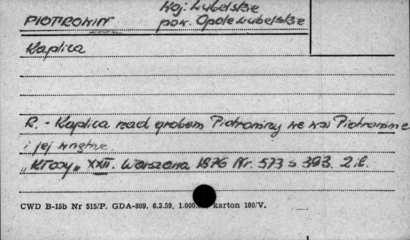 Woj. Lubelskie
PIOTROWIN pow. Opole Lubelskie
Kaplica
R. - Kaplica nad grobem Piotrowiny we wsi Piotrowinie
i jej wnętrze.
„Kłosy" XXII. Warszawa 1876 Nr. 573 s 393. 2 il.
CWD B-15b Nr 515/P. GDA-809. 6.3.59. karton 180/V.